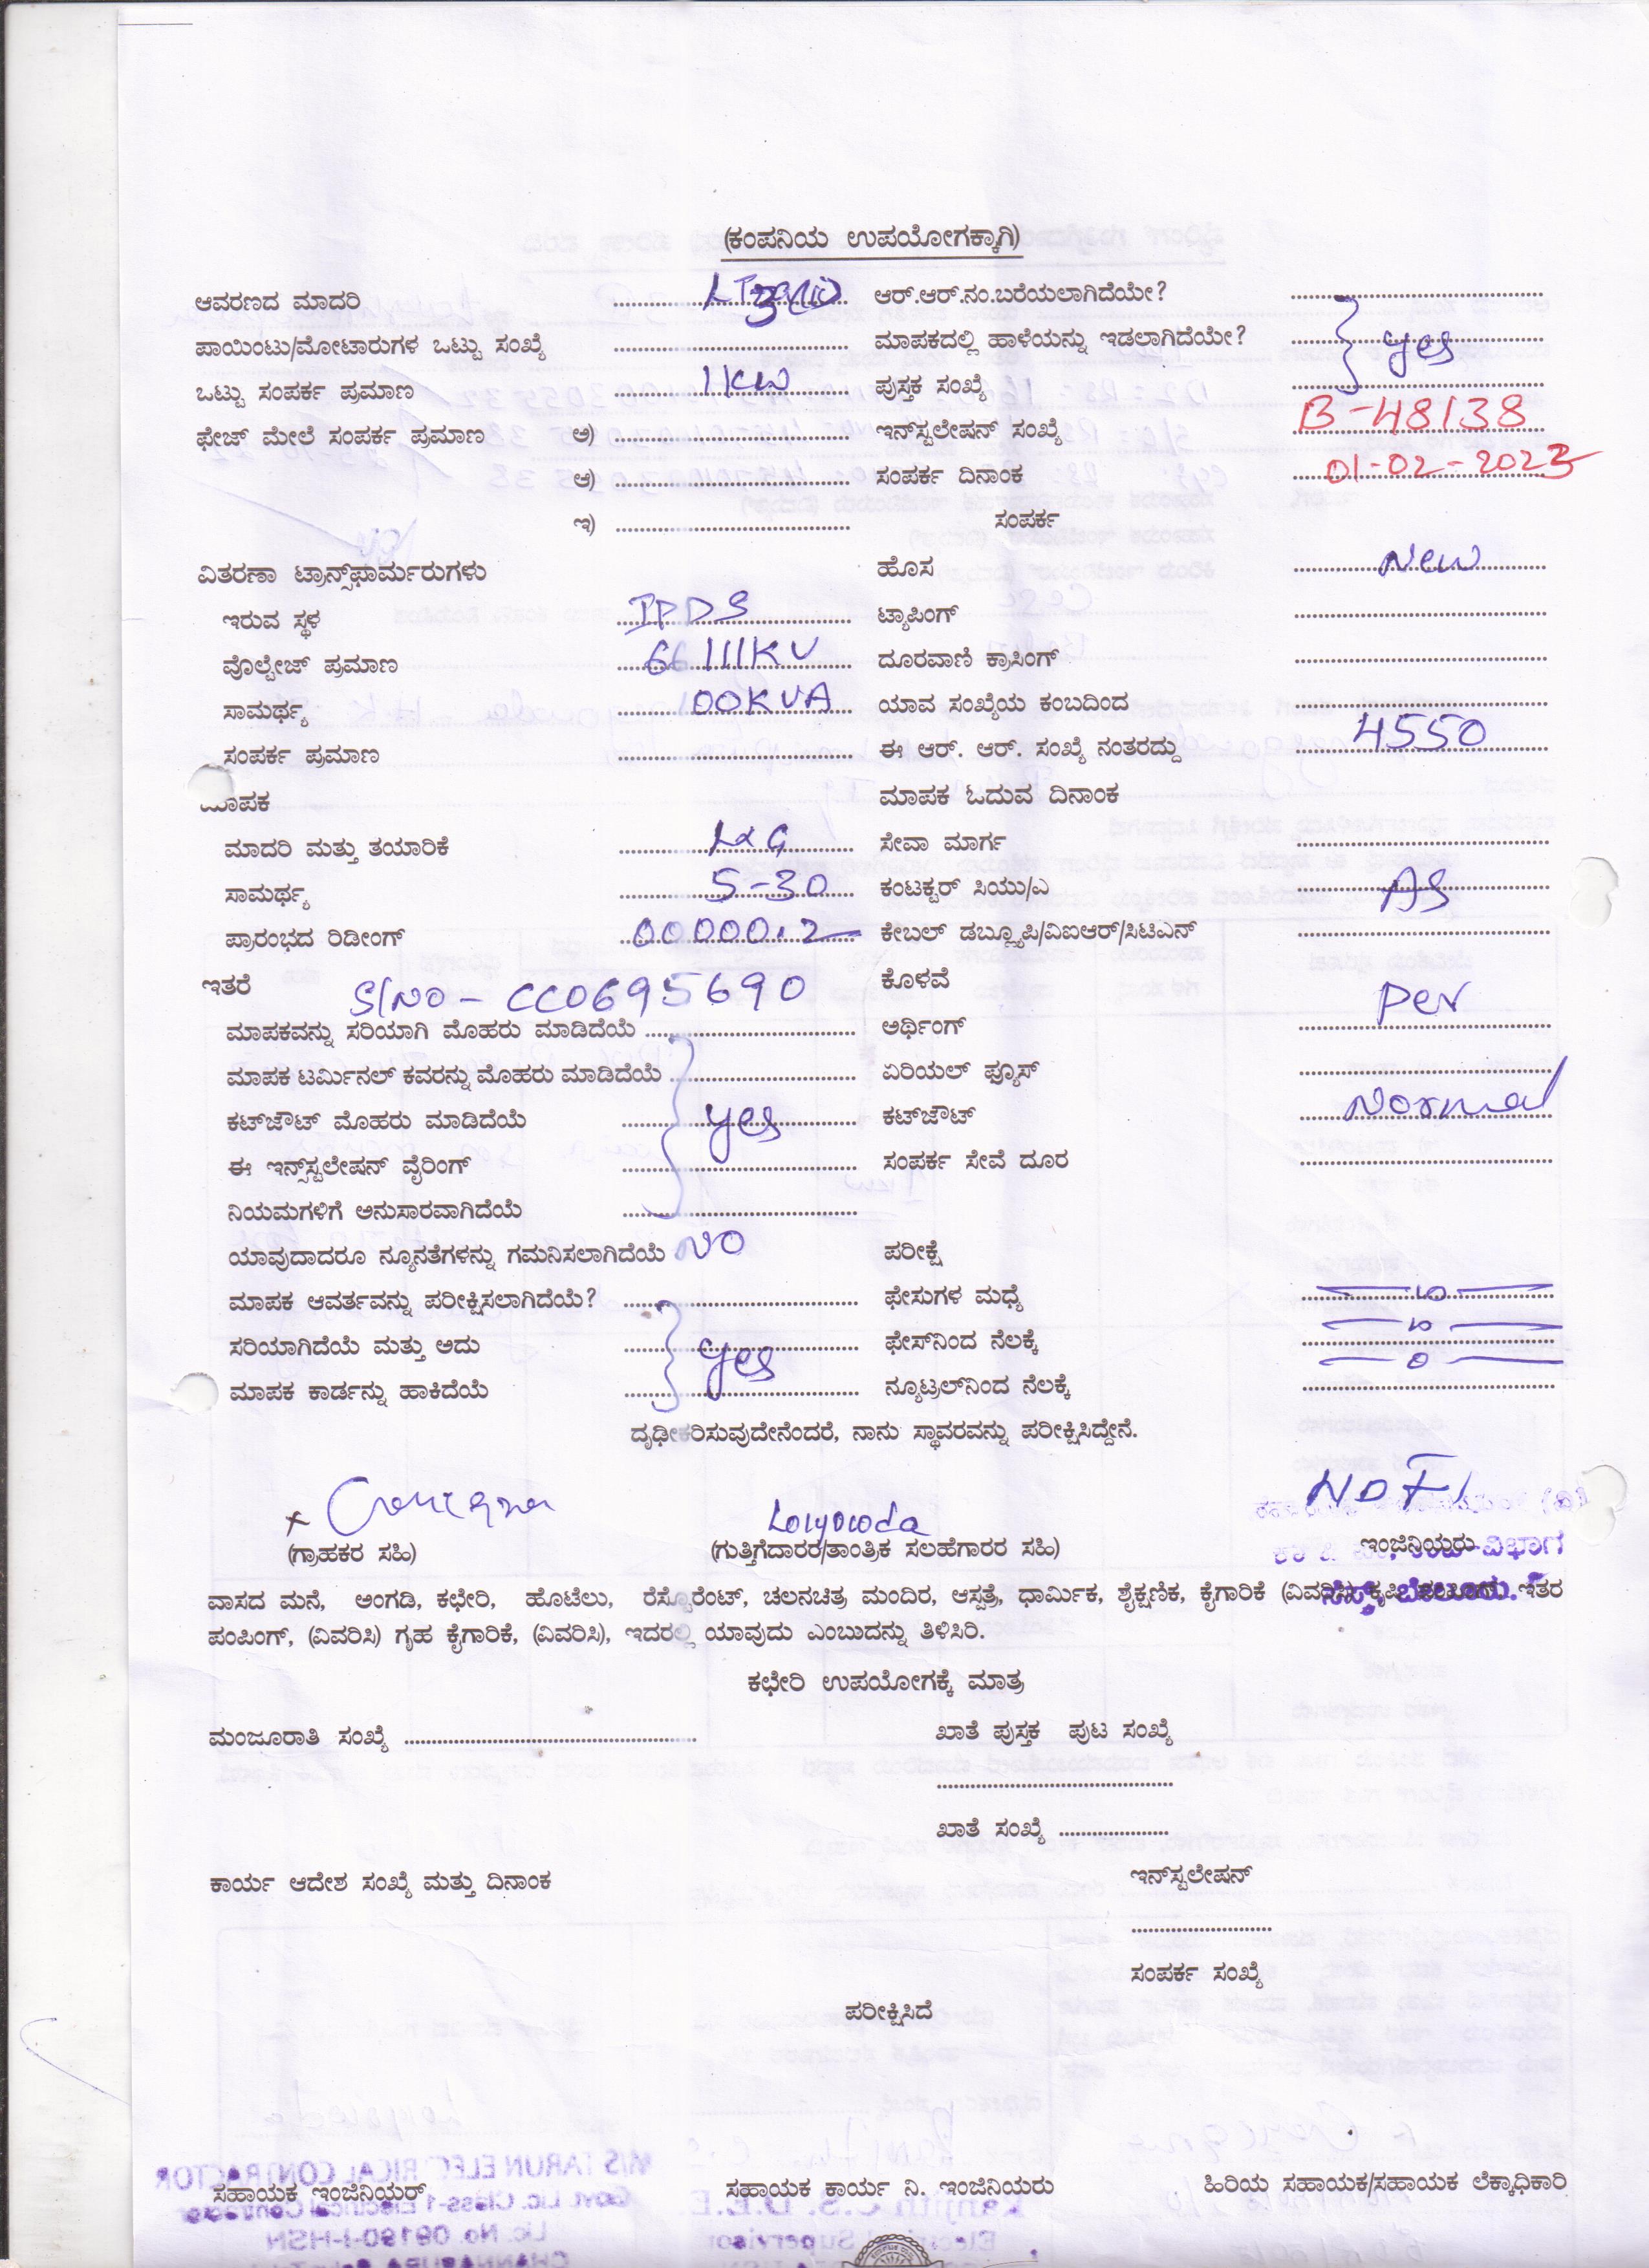 (ಕಂಪನಿಯ ಉಪಯೋಗಕ್ಕಾಗಿ)
ಆವರಣದ ಮಾದರಿ ............ ಆರ್.ಆರ್.ನಂ.ಬರೆಯಲಾಗಿದೆಯೇ? ............
ಪಾಯಿಂಟು/ಮೋಟಾರುಗಳ ಒಟ್ಟು ಸಂಖ್ಯೆ ............ ಮಾಪಕದಲ್ಲಿ ಹಾಳೆಯನ್ನು ಇಡಲಾಗಿದೆಯೇ? yes
ಒಟ್ಟು ಸಂಪರ್ಕ ಪ್ರಮಾಣ 1KW ಪುಸ್ತಕ ಸಂಖ್ಯೆ ............
ಫೇಜ್ ಮೇಲೆ ಸಂಪರ್ಕ ಪ್ರಮಾಣ ಅ) ............ ಇನ್‌ಸ್ಟಲೇಷನ್ ಸಂಖ್ಯೆ B-48138
ಆ) ............ ಸಂಪರ್ಕ ದಿನಾಂಕ 01-02-2023
ಇ) ............ ಸಂಪರ್ಕ
ವಿತರಣಾ ಟ್ರಾನ್ಸ್‌ಫಾರ್ಮರುಗಳು ಹೊಸ New
ಇರುವ ಸ್ಥಳ IPDS ಟ್ಯಾಪಿಂಗ್ ............
ವೊಲ್ಟೇಜ್ ಪ್ರಮಾಣ 66/11KV ದೂರವಾಣಿ ಕ್ರಾಸಿಂಗ್ ............
ಸಾಮರ್ಥ್ಯ 100KVA ಯಾವ ಸಂಖ್ಯೆಯ ಕಂಬದಿಂದ ............
ಸಂಪರ್ಕ ಪ್ರಮಾಣ ............ ಈ ಆರ್. ಆರ್. ಸಂಖ್ಯೆ ನಂತರದ್ದು 4550
ಮಾಪಕ ಮಾಪಕ ಓದುವ ದಿನಾಂಕ
ಮಾದರಿ ಮತ್ತು ತಯಾರಿಕೆ L&G ಸೇವಾ ಮಾರ್ಗ ............
ಸಾಮರ್ಥ್ಯ 5-30 ಕಂಟಕ್ಟರ್ ಸಿಯು/ಎ AS
ಪ್ರಾರಂಭದ ರಿಡೀಂಗ್ 00000.2 ಕೇಬಲ್ ಡಬ್ಲ್ಯೂಪಿ/ವಿಐಆರ್/ಸಿಟಿಎನ್ ............
ಇತರೆ S/NO - CC0695690 ಕೊಳವೆ
ಮಾಪಕವನ್ನು ಸರಿಯಾಗಿ ಮೊಹರು ಮಾಡಿದೆಯೆ ............ ಅರ್ಥಿಂಗ್ per
ಮಾಪಕ ಟರ್ಮಿನಲ್ ಕವರನ್ನು ಮೊಹರು ಮಾಡಿದೆಯೆ ............ ಏರಿಯಲ್ ಫ್ಯೂಸ್ ............
ಕಟ್‌ಜೌಟ್ ಮೊಹರು ಮಾಡಿದೆಯೆ yes ಕಟ್‌ಜೌಟ್ Normal
ಈ ಇನ್ಸ್‌ಸ್ಟಲೇಷನ್ ವೈರಿಂಗ್ ............ ಸಂಪರ್ಕ ಸೇವೆ ದೂರ ............
ನಿಯಮಗಳಿಗೆ ಅನುಸಾರವಾಗಿದೆಯೆ ............
ಯಾವುದಾದರೂ ನ್ಯೂನತೆಗಳನ್ನು ಗಮನಿಸಲಾಗಿದೆಯೆ NO ಪರೀಕ್ಷೆ
ಮಾಪಕ ಆವರ್ತವನ್ನು ಪರೀಕ್ಷಿಸಲಾಗಿದೆಯೆ? ............ ಫೇಸುಗಳ ಮಧ್ಯೆ
ಸರಿಯಾಗಿದೆಯೆ ಮತ್ತು ಅದು yes ಫೇಸ್‌ನಿಂದ ನೆಲಕ್ಕೆ
ಮಾಪಕ ಕಾರ್ಡನ್ನು ಹಾಕಿದೆಯೆ ............ ನ್ಯೂಟ್ರಲ್‌ನಿಂದ ನೆಲಕ್ಕೆ
ದೃಢೀಕರಿಸುವುದೇನೆಂದರೆ, ನಾನು ಸ್ಥಾವರವನ್ನು ಪರೀಕ್ಷಿಸಿದ್ದೇನೆ.
(ಗ್ರಾಹಕರ ಸಹಿ) (ಗುತ್ತಿಗೆದಾರರ/ತಾಂತ್ರಿಕ ಸಲಹೆಗಾರರ ಸಹಿ) ಇಂಜಿನಿಯರು
ವಾಸದ ಮನೆ, ಅಂಗಡಿ, ಕಛೇರಿ, ಹೊಟೆಲು, ರೆಸ್ಟೊರೆಂಟ್, ಚಲನಚಿತ್ರ ಮಂದಿರ, ಆಸ್ಪತ್ರೆ, ಧಾರ್ಮಿಕ, ಶೈಕ್ಷಣಿಕ, ಕೈಗಾರಿಕೆ (ವಿವರಿಸಿ) ಇತರ
ಪಂಪಿಂಗ್, (ವಿವರಿಸಿ) ಗೃಹ ಕೈಗಾರಿಕೆ, (ವಿವರಿಸಿ), ಇದರಲ್ಲಿ ಯಾವುದು ಎಂಬುದನ್ನು ತಿಳಿಸಿರಿ.
ಕಛೇರಿ ಉಪಯೋಗಕ್ಕೆ ಮಾತ್ರ
ಮಂಜೂರಾತಿ ಸಂಖ್ಯೆ ............ ಖಾತೆ ಪುಸ್ತಕ ಪುಟ ಸಂಖ್ಯೆ
............
ಖಾತೆ ಸಂಖ್ಯೆ ............
ಕಾರ್ಯ ಆದೇಶ ಸಂಖ್ಯೆ ಮತ್ತು ದಿನಾಂಕ ಇನ್‌ಸ್ಟಲೇಷನ್
............
ಸಂಪರ್ಕ ಸಂಖ್ಯೆ
ಪರೀಕ್ಷಿಸಿದೆ
ಸಹಾಯಕ ಇಂಜಿನಿಯರ್ ಸಹಾಯಕ ಕಾರ್ಯ ನಿ. ಇಂಜಿನಿಯರು ಹಿರಿಯ ಸಹಾಯಕ/ಸಹಾಯಕ ಲೆಕ್ಕಾಧಿಕಾರಿ